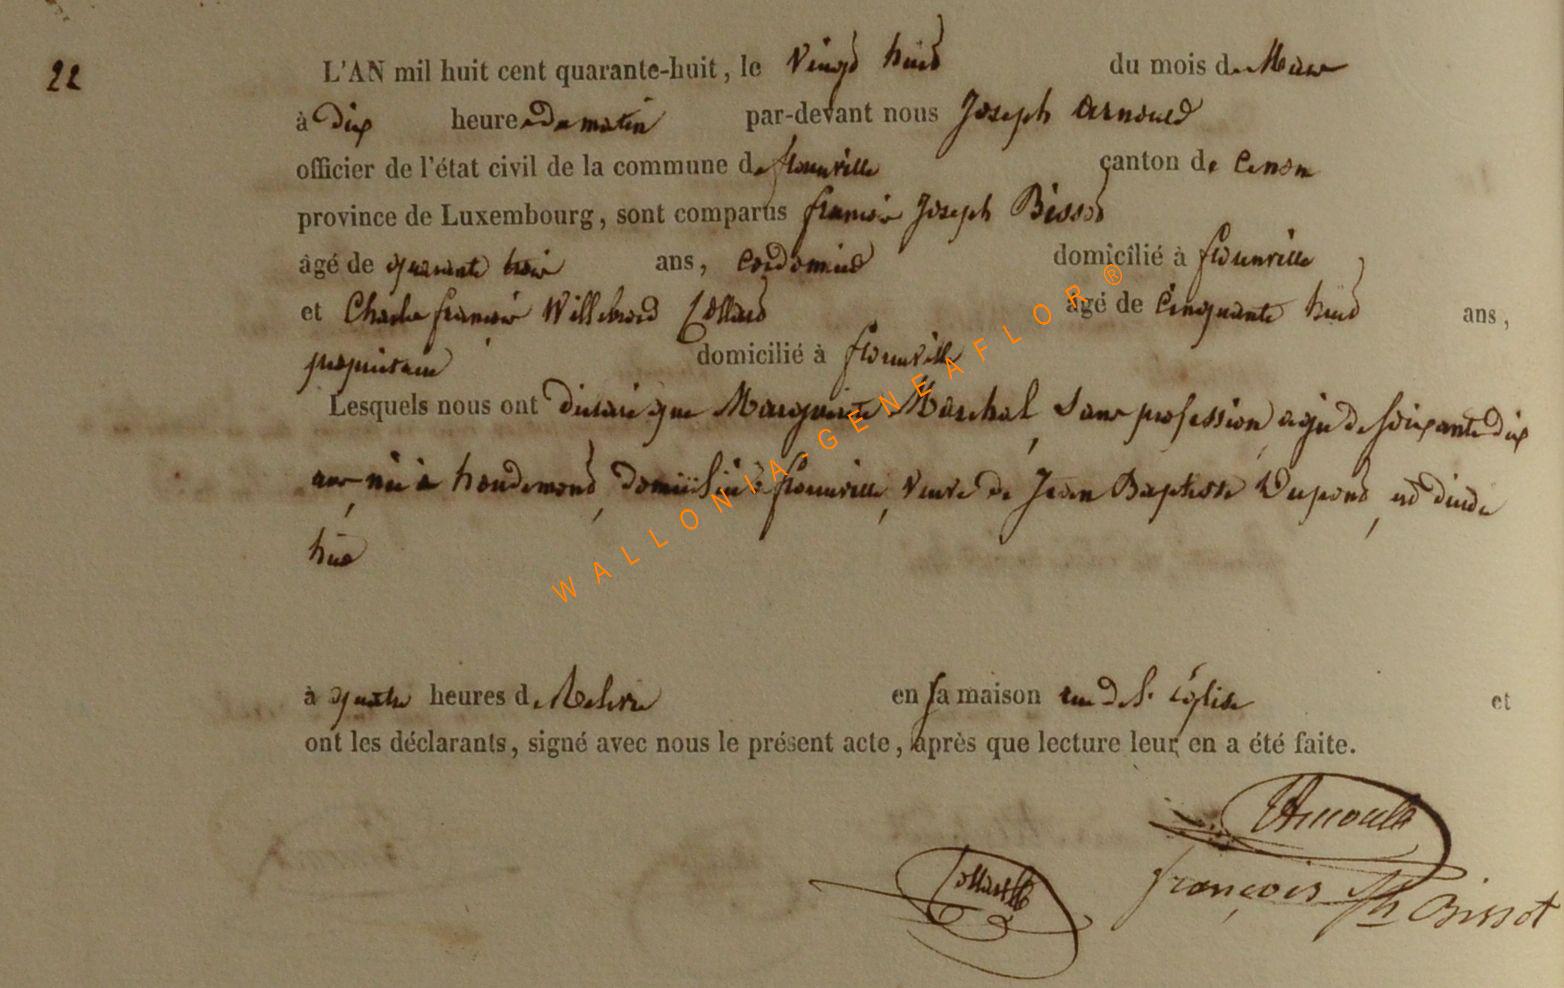 22
L'AN mil huit cent quarante-huit, le vingt huit du mois de Mars
à dix heures du matin par-devant nous Joseph Arnould
officier de l'état civil de la commune de florenville canton de idem
province de Luxembourg, sont comparus françois Joseph Bissot
âgé de quarante trois ans, cordonnier domicilié à florenville
et Charles françois Willibrord Collard âgé de cinquante huit ans,
propriétaire domicilié à florenville
Lesquels nous ont déclaré que Marguerite Maréchal, sans profession, agée de soixante dix
ans, née à houdemont, domiciliée à florenville, veuve de Jean Baptiste Dupont, est décédée
hier
à quatre heures de Relevée en sa maison rue de l'église et
ont les déclarants, signé avec nous le présent acte, après que lecture leur en a été faite.
Arnould
Collard
françois Jph Bissot
WALLONIA-GENEAFLOR®